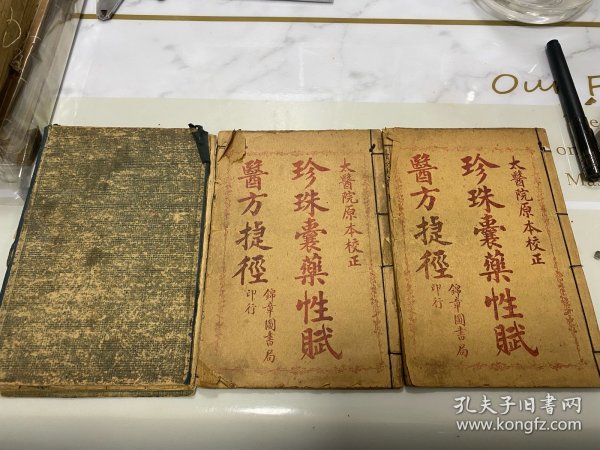 Our F
太醫院原本校正
珍珠囊藥性賦
醫方捷徑
錦章圖書局
印行
太醫院原本校正
珍珠囊藥性賦
醫方捷徑
錦章圖書局
印行
孔夫子旧书网
www.kongfz.com